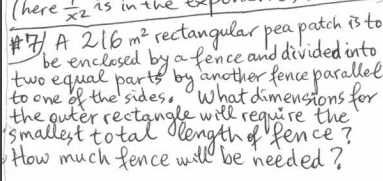 (here 1/x2 is in the
#7) A 216 m² rectangular pea patch is to
be enclosed by a fence and divided into
two equal parts by another fence parallel
to one of the sides. What dimensions for
the outer rectangle will require the
smallest total length of fence?
How much fence will be needed?